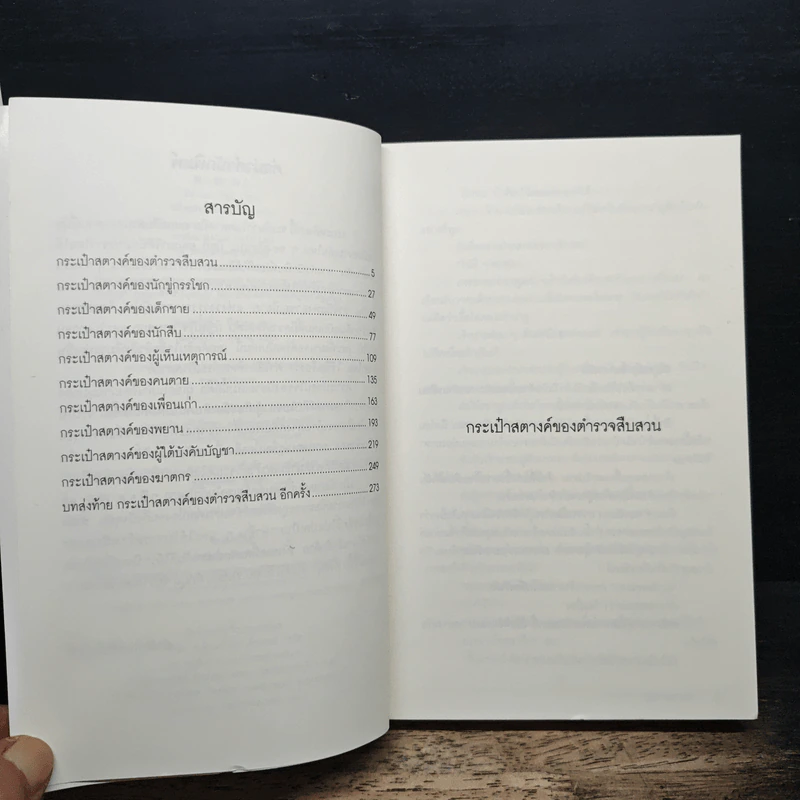 สารบัญ
กระเป๋าสตางค์ของตำรวจสืบสวน.......................................5
กระเป๋าสตางค์ของนักขู่กรรโชก.......................................27
กระเป๋าสตางค์ของเด็กชาย............................................49
กระเป๋าสตางค์ของนักสืบ..............................................77
กระเป๋าสตางค์ของผู้เห็นเหตุการณ์..................................109
กระเป๋าสตางค์ของคนตาย............................................135
กระเป๋าสตางค์ของเพื่อนเก่า..........................................163
กระเป๋าสตางค์ของพยาน..............................................193
กระเป๋าสตางค์ของผู้ใต้บังคับบัญชา.................................219
กระเป๋าสตางค์ของฆาตกร............................................249
บทส่งท้าย กระเป๋าสตางค์ของตำรวจสืบสวน อีกครั้ง...............273
กระเป๋าสตางค์ของตำรวจสืบสวน